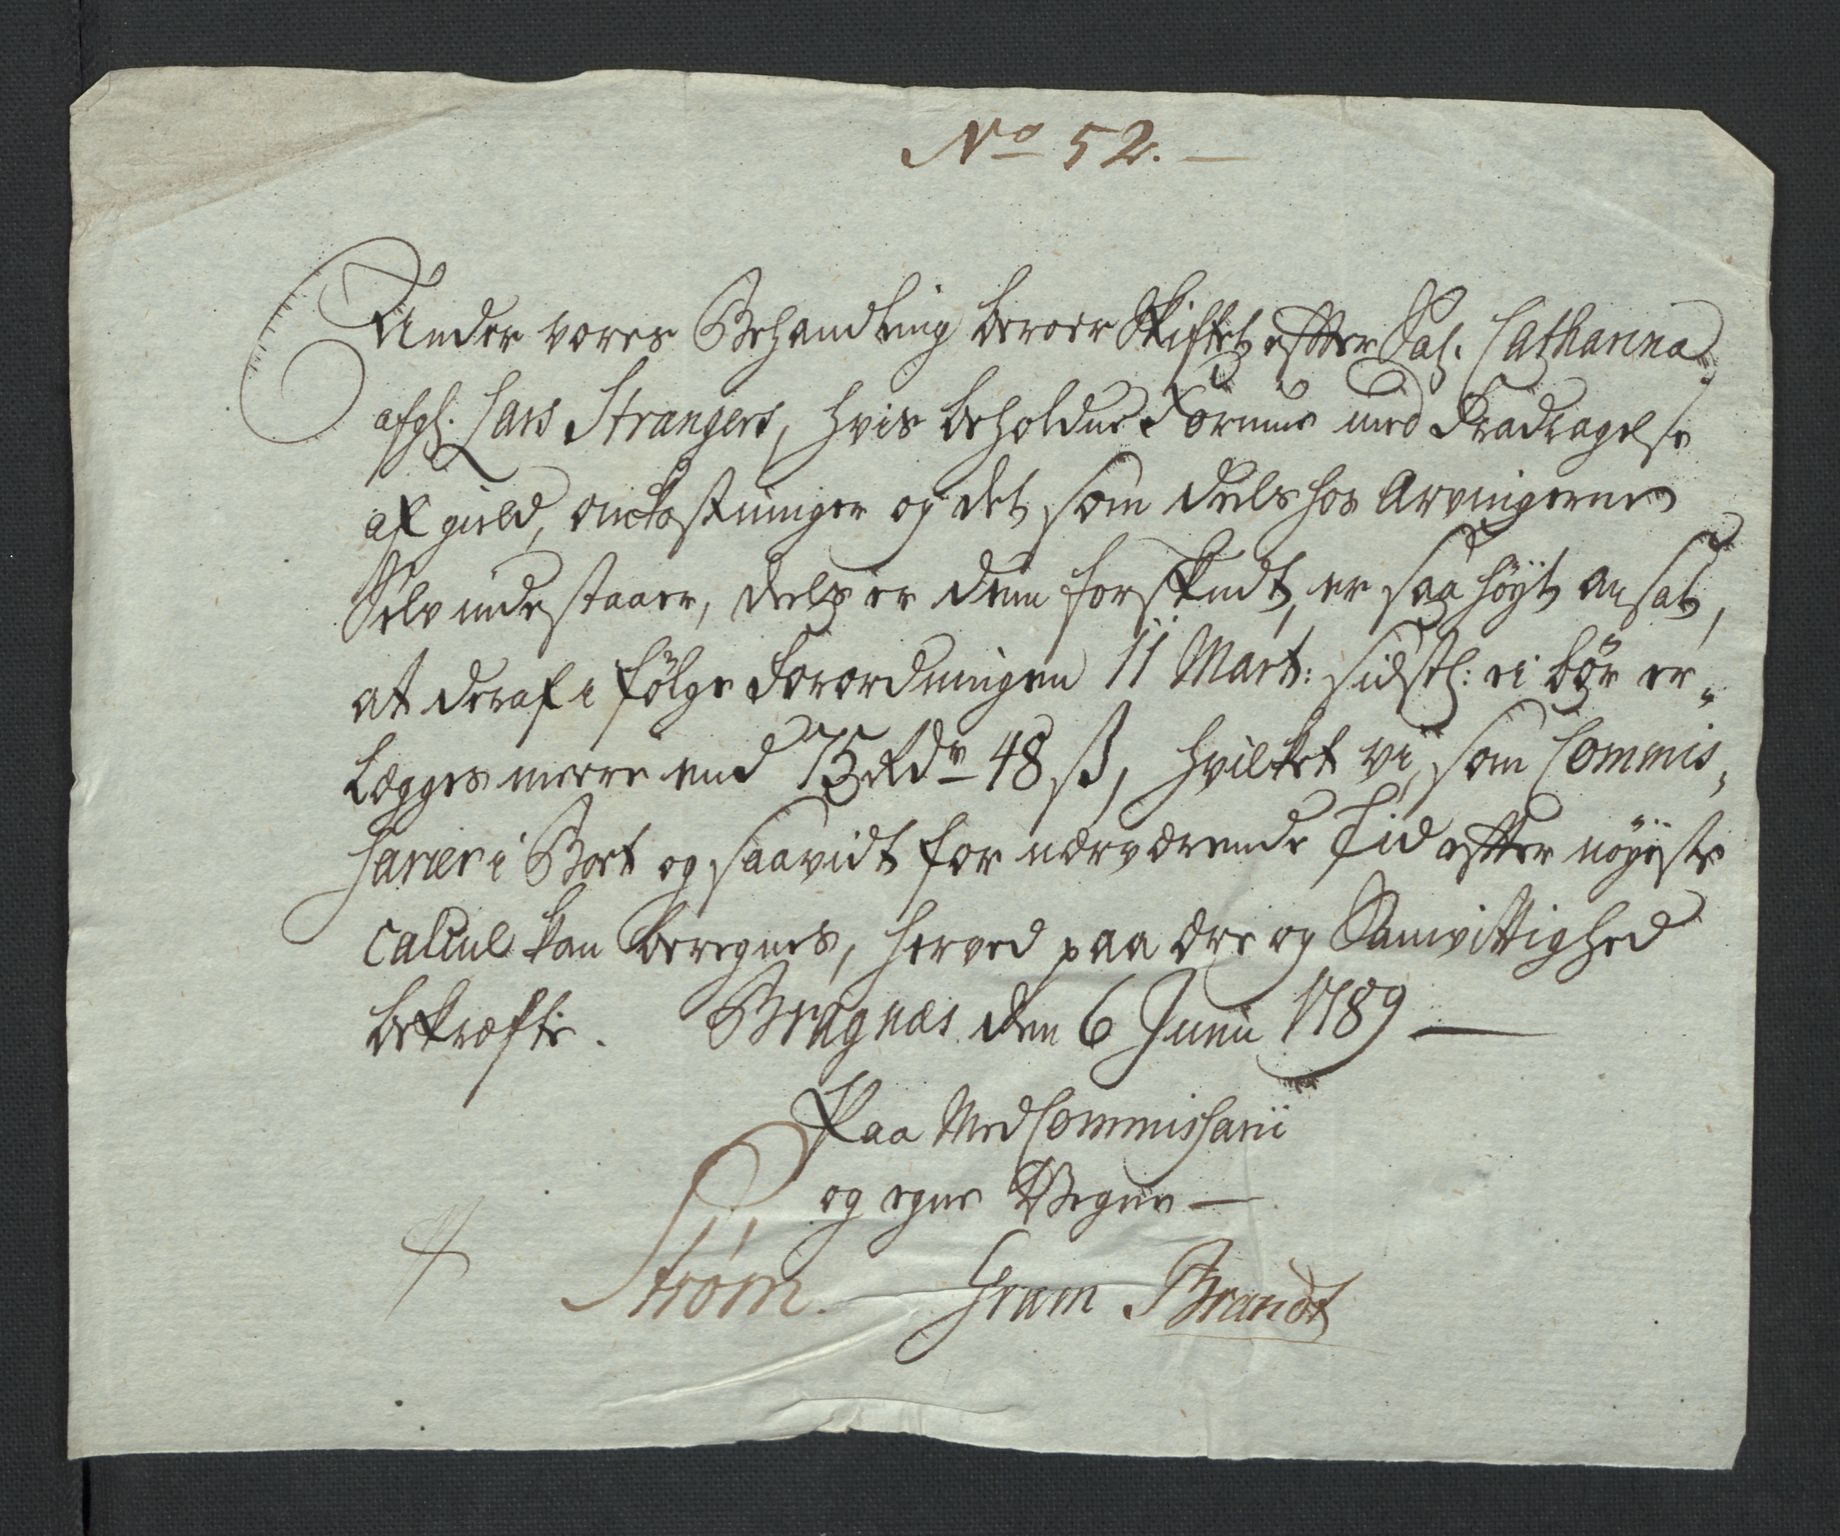 No 52.
Under vores Behandling beroer Skiftet efter Sal. Catharina
afgl. Lars Strangers, hvis beholdne Formue med Fradragelse
af gield, omkostninger og det som deels hos Arvingerne
Selv indestaaer, deels er dem forskudt, er saa höyt ansat,
at deraf i fölge Forordningen 11 Mart: sidstl: ei bör er-
lægges meere end 75 Rdr 48 ß, hvilket vi, som Commis-
sarier i Boet og saavidt for nærværende Tid efter nöyeste
Calcul kan beregnes, herved paa ære og Samvittighed
bekræfte. Bragnæs den 6 Junii 1789
Paa Med Commissarii
og egne Vegne
Strøm. Gram Brandt